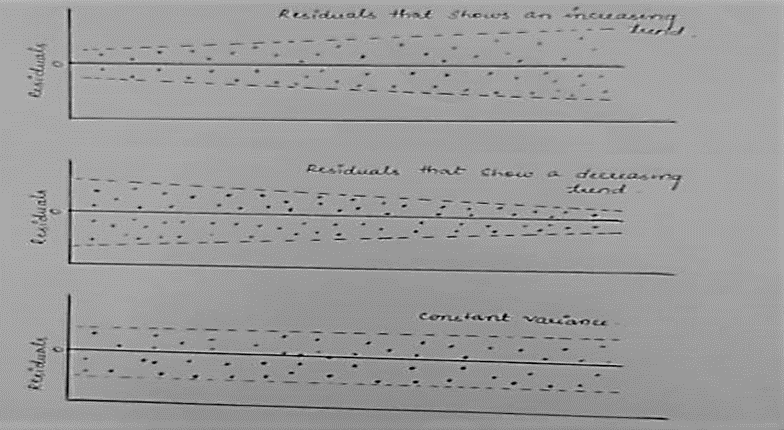 Residuals that shows an increasing
trend.
Residuals
0
Residuals that show a decreasing
trend.
Residuals
0
Constant variance.
Residuals
0